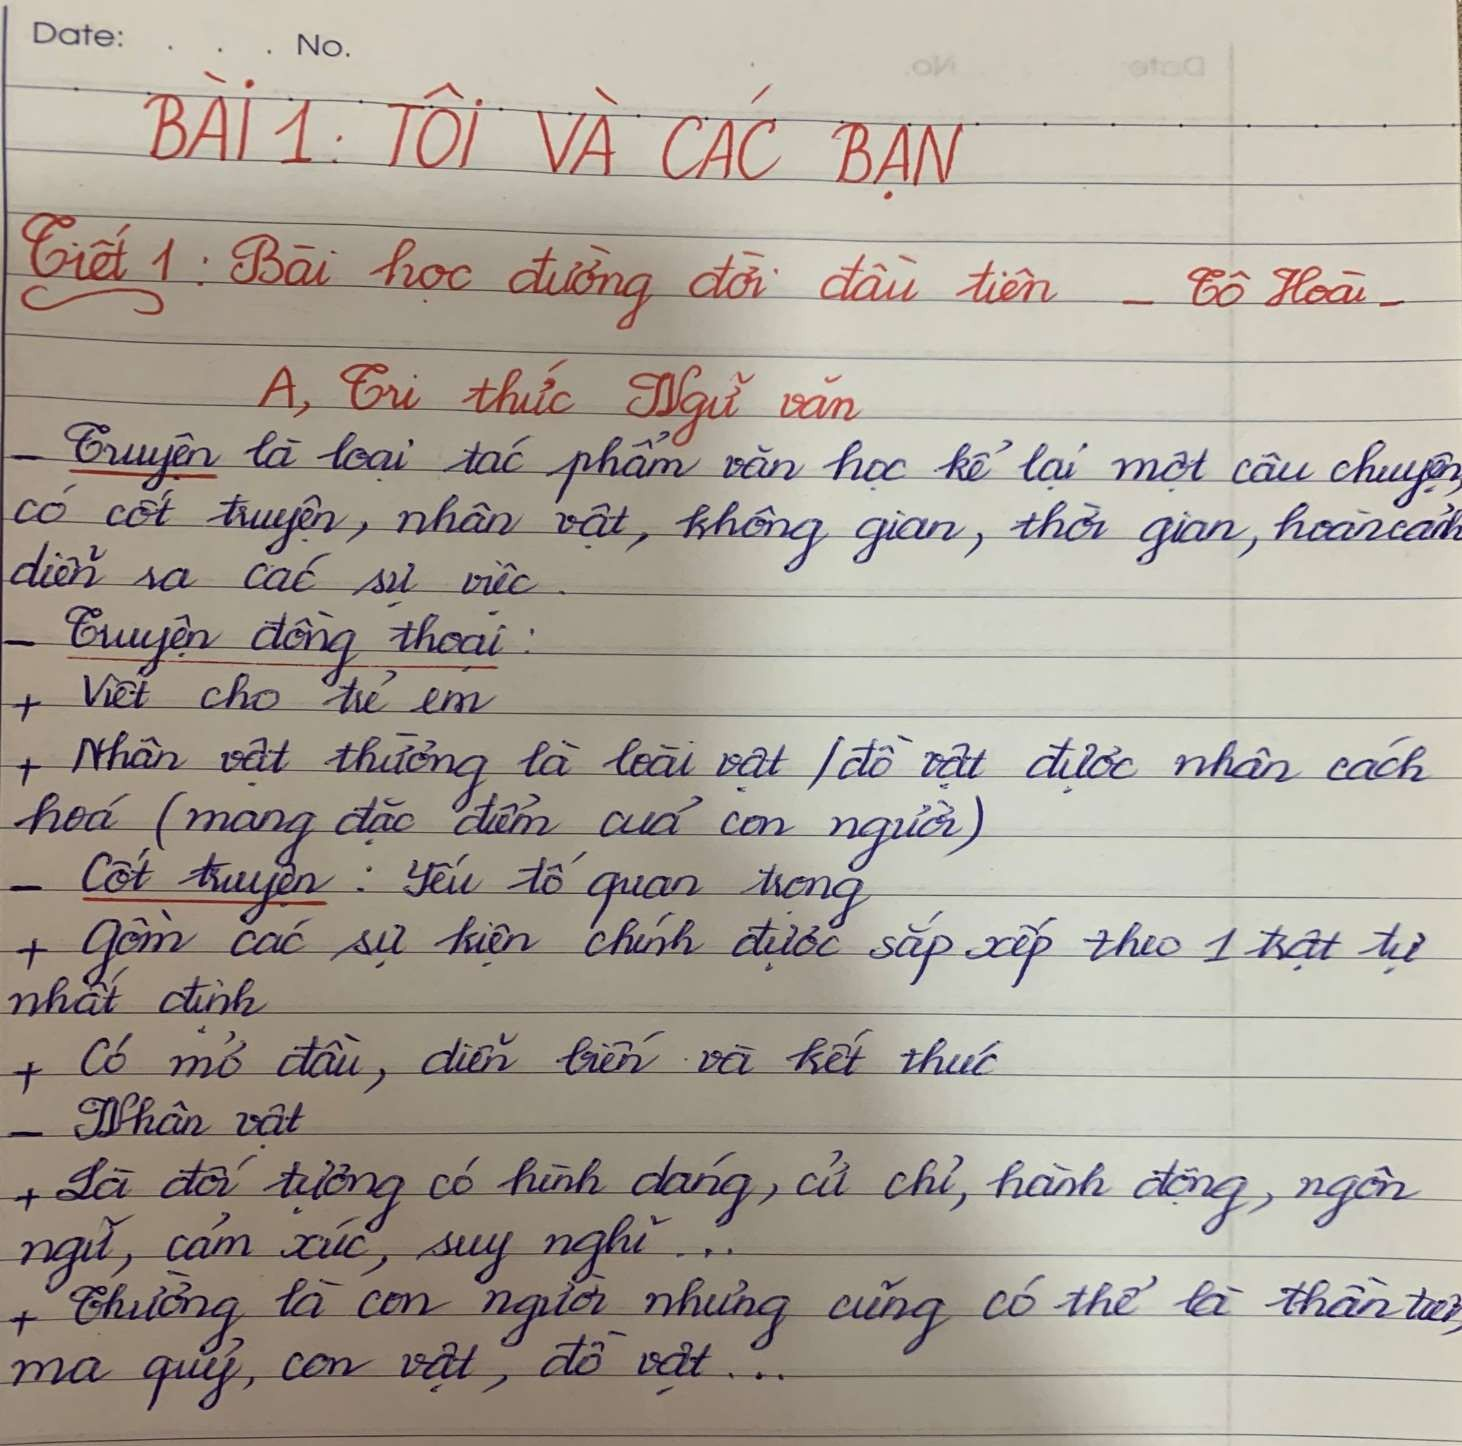 Date: . . . No.
BÀI 1: TÔI VÀ CÁC BẠN
Tiết 1: Bài học đường đời đầu tiên - Tô Hoài -
A, Tri thức Ngữ văn
- Truyện là loại tác phẩm văn học kể lại một câu chuyện,
có cốt truyện, nhân vật, không gian, thời gian, hoàn cảnh
diễn ra các sự việc.
- Truyện đồng thoại:
+ Viết cho trẻ em
+ Nhân vật thường là loài vật / đồ vật được nhân cách
hoá (mang đặc điểm của con người)
- Cốt truyện: Yếu tố quan trọng
+ Gồm các sự kiện chính được sắp xếp theo 1 trật tự
nhất định
+ Có mở đầu, diễn biến và kết thúc
- Nhân vật
+ Là đối tượng có hình dáng, cử chỉ, hành động, ngôn
ngữ, cảm xúc, suy nghĩ...
+ Thường là con người nhưng cũng có thể là thần tiên,
ma quỷ, con vật, đồ vật...